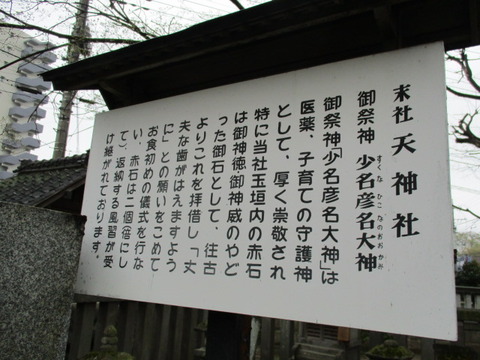 末社 天神社
御祭神 少名彦名大神
すくなかこなのおおかみ
御祭神「少名彦名大神」は
医薬、子育ての守護神
として、厚く崇敬され
特に当社玉垣内の赤石
は御神徳御神威のやど
った御石として、往古
よりこれを拝借し「丈
夫な歯がはえますよう
に」との願いをこめて
お食初めの儀式を行な
い、赤石は二個(倍にし
て)返納する風習が受
け継がれております。